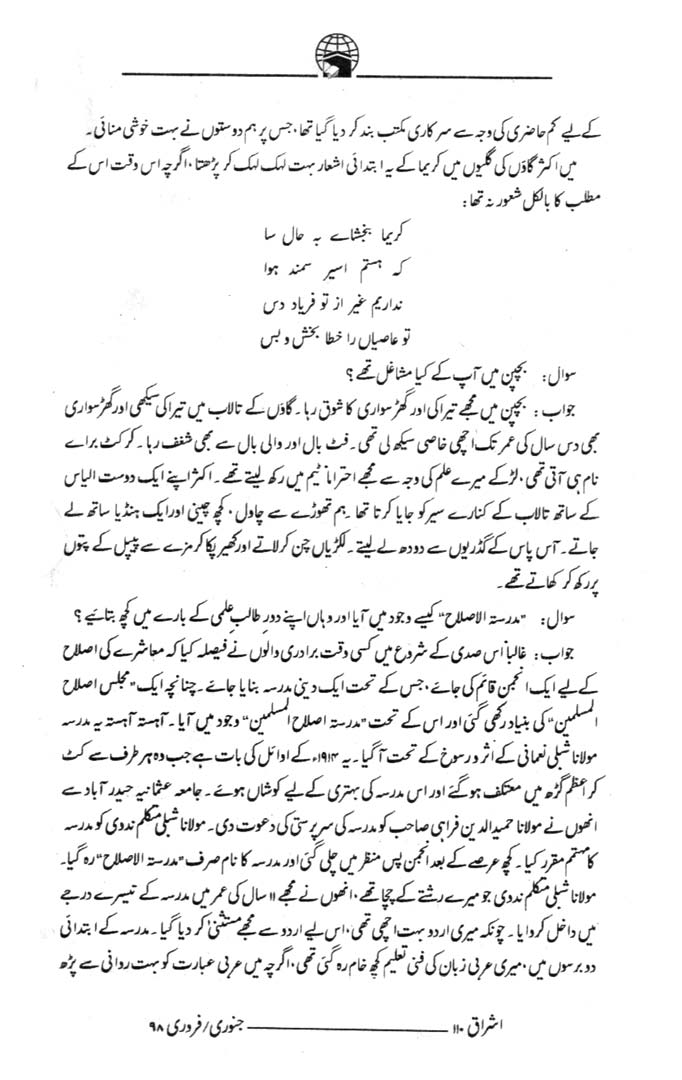 کے لیے کم حاضری کی وجہ سے سرکاری مکتب بند کر دیا گیا تھا، جس پر ہم دوستوں نے بہت خوشی منائی۔
میں اکثر گاؤں کی گلیوں میں کریما کے یہ ابتدائی اشعار بہت لہک لہک کر پڑھتا، اگرچہ اس وقت اس کے
مطلب کا بالکل شعور نہ تھا:
کریما بخشاے بہ حال سا
کہ ہستم اسیر سمند ہوا
نداریم غیر از تو فریاد دس
تو عاصیاں را خطا بخش و بس
سوال: بچپن میں آپ کے کیا مشاغل تھے؟
جواب: بچپن میں مجھے تیراکی اور گھڑ سواری کا شوق رہا۔ گاؤں کے تالاب میں تیراکی سیکھی اور گھڑ سواری
بھی دس سال کی عمر تک اچھی خاصی سیکھ لی تھی۔ فٹ بال اور والی بال سے بھی شغف رہا۔ کرکٹ براے
نام ہی آتی تھی، لڑکے میرے علم کی وجہ سے مجھے احتراماً ٹیم میں رکھ لیتے تھے۔ اکثر اپنے ایک دوست الیاس
کے ساتھ تالاب کے کنارے سیر کو جایا کرتا تھا۔ ہم تھوڑے سے چاول، کچھ چینی اور ایک ہنڈیا ساتھ لے
جاتے۔ آس پاس کے گڈریوں سے دودھ لے لیتے۔ لکڑیاں چن کر لاتے اور کھیر پکا کر مزے سے پیپل کے پتوں
پر رکھ کر کھاتے تھے۔
سوال: "مدرستہ الاصلاح" کیسے وجود میں آیا اور وہاں اپنے دورِ طالب علمی کے بارے میں کچھ بتائیے؟
جواب: غالباً اس صدی کے شروع میں کسی وقت برادری والوں نے فیصلہ کیا کہ معاشرے کی اصلاح
کے لیے ایک انجمن قائم کی جائے، جس کے تحت ایک دینی مدرسہ بنایا جائے۔ چنانچہ ایک "مجلس اصلاح
المسلمین" کی بنیاد رکھی گئی اور اس کے تحت "مدرستہ اصلاح المسلمین" وجود میں آیا۔ آہستہ آہستہ یہ مدرسہ
مولانا شبلی نعمانی کے اثر و رسوخ کے تحت آ گیا۔ یہ ۱۹۱۴ء کے اوائل کی بات ہے جب وہ ہر طرف سے کٹ
کر اعظم گڑھ میں معتکف ہو گئے اور اس مدرسہ کی بہتری کے لیے کوشاں ہوئے۔ جامعہ عثمانیہ حیدر آباد سے
انھوں نے مولانا حمید الدین فراہی صاحب کو مدرسہ کی سرپرستی کی دعوت دی۔ مولانا شبلی متکلم ندوی کو مدرسہ
کا مہتمم مقرر کیا۔ کچھ عرصے کے بعد انجمن پس منظر میں چلی گئی اور مدرسہ کا نام صرف "مدرستہ الاصلاح" رہ گیا۔
مولانا شبلی متکلم ندوی جو میرے رشتے کے چچا تھے، انھوں نے مجھے ۱۱ سال کی عمر میں مدرسہ کے تیسرے درجے
میں داخل کروایا۔ چونکہ میری اردو بہت اچھی تھی، اس لیے اردو سے مجھے مستثنیٰ کر دیا گیا۔ مدرسہ کے ابتدائی
دو برسوں میں، میری عربی زبان کی فنی تعلیم کچھ خام رہ گئی تھی، اگرچہ میں عربی عبارت کو بہت روانی سے پڑھ
اشراق ۱۱۰ جنوری/فروری ۹۸